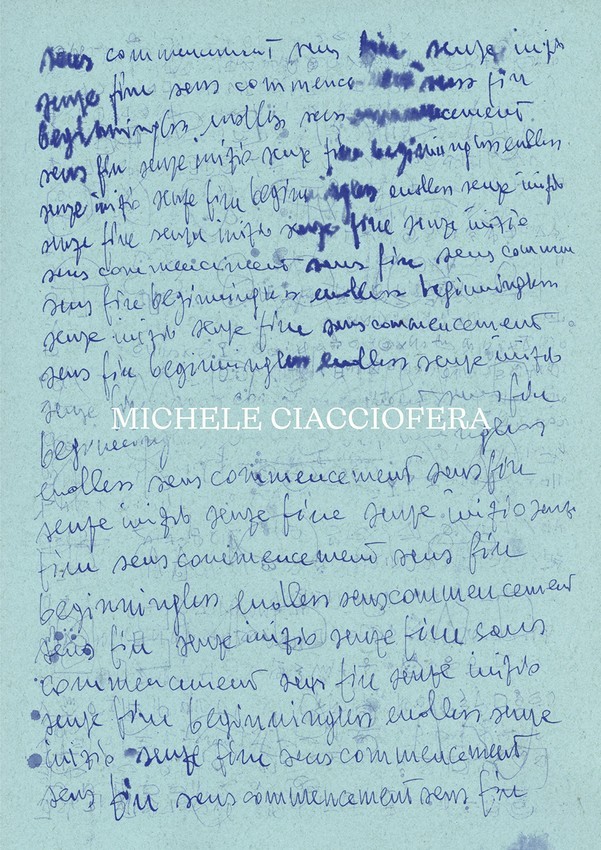 sans commencement sans fin senza inizio
senza fine sans commence sans fin
beginningless endless sans cement
sans fin senza inizio senza fine beginningless endless
senza inizio senza fine beginningless endless senza inizio
senza fine senza inizio senza fine senza inizio
sans commencement sans fin sans commen
sans fin beginningless endless beginningless
senza inizio senza fine sans commencement
sans fin beginningless endless senza inizio
senza sans fin
MICHELE CIACCIOFERA
beginning gless
endless sans commencement sans fin
senza inizio senza fine senza inizio senza
fine sans commencement sans fin
beginningless endless sans commencement
sans fin senza inizio senza fine sans
commencement sans fin senza inizio
senza fine beginningless endless senza
inizio senza fine sans commencement
sans fin sans commencement sans fin